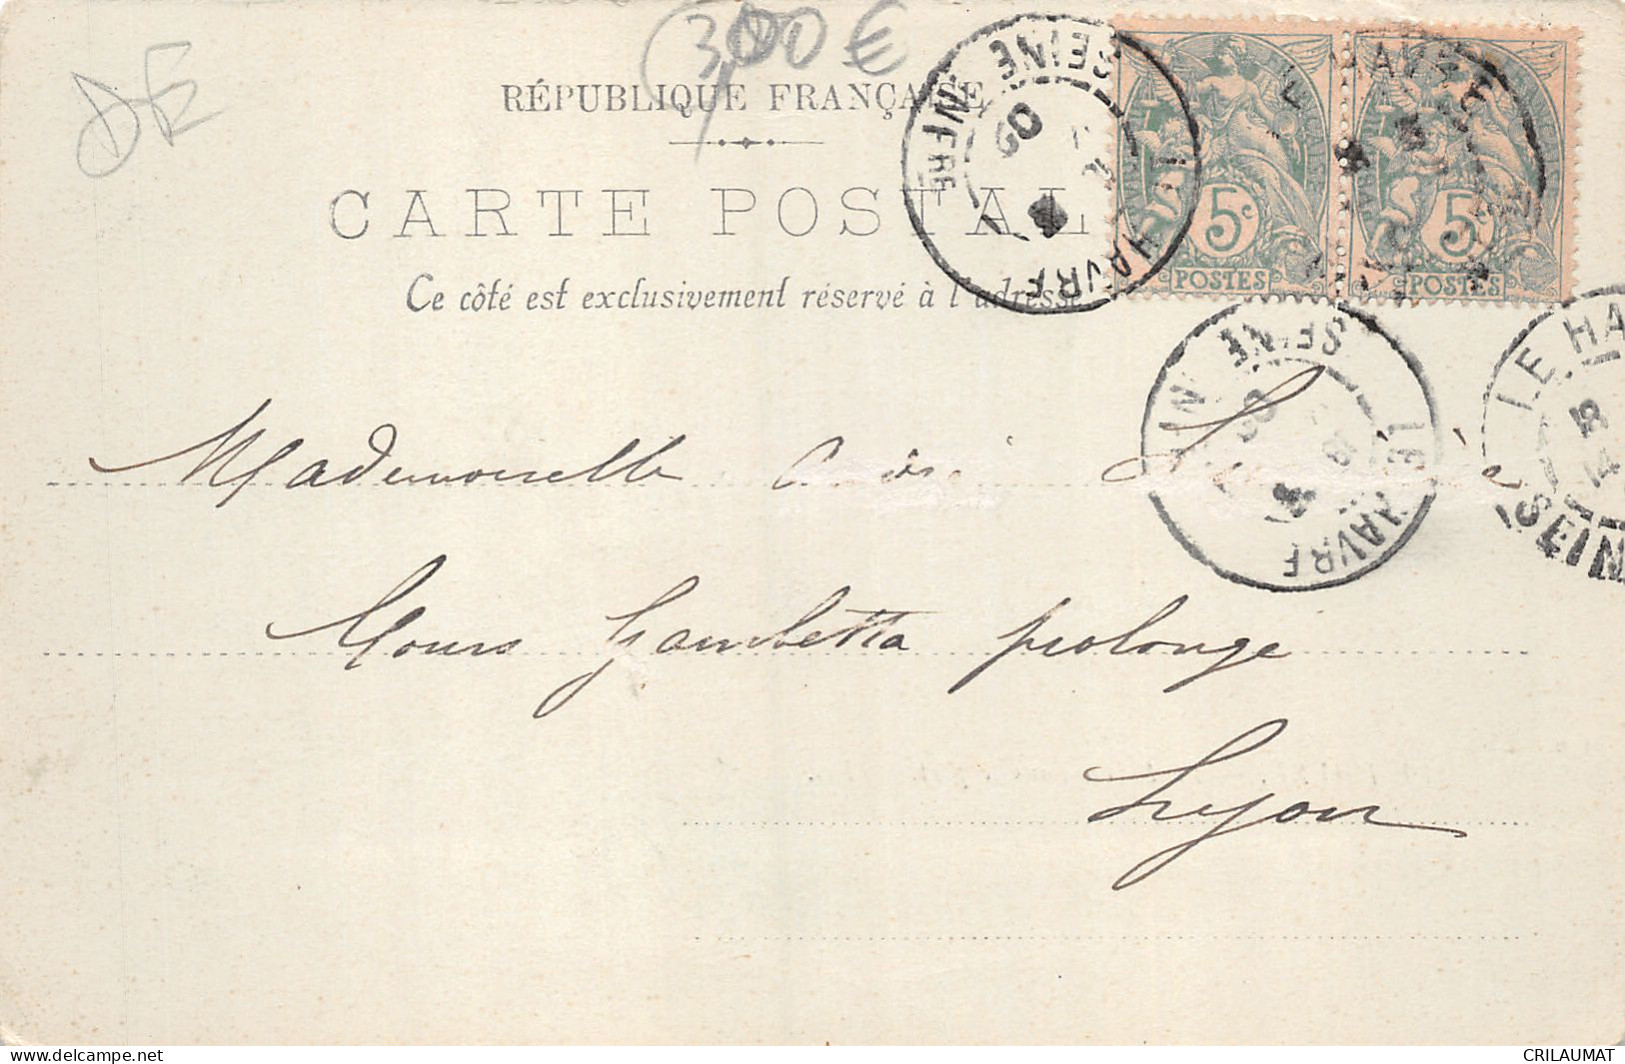 3,00 €
DE
RÉPUBLIQUE FRANÇAISE
CARTE POSTALE
Ce côté est exclusivement réservé à l'adresse
LE HAVRE SEINE INFRE
5c 5
POSTES POSTES
LE HAVRE SEINE IN
LE HA
SEIN
Mademoiselle
Cours Gambetta prolongé
Lyon
CRILAUMAT